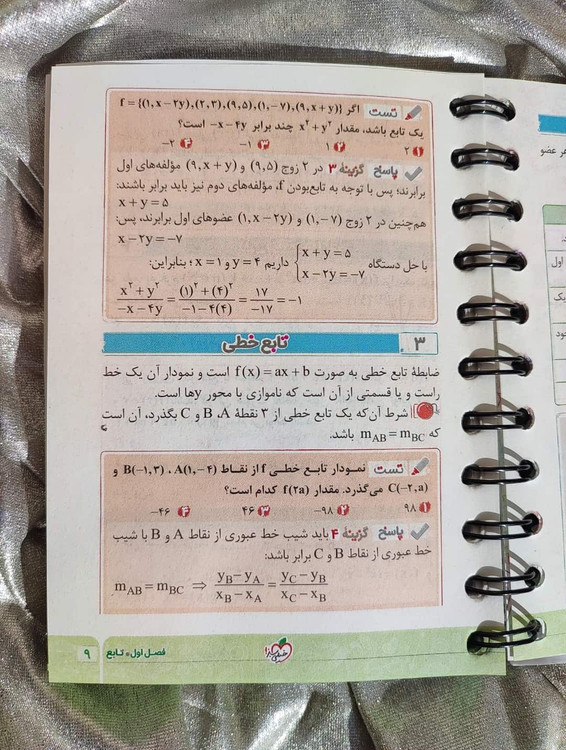 تست اگر f = {(۱, x − ۲y), (۲, ۳), (۹, ۵), (۱, −۷), (۹, x + y)}
یک تابع باشد، مقدار x² + y² چند برابر −x − ۴y است؟
۱ ۲ ۲ ۱ ۳ −۱ ۴ −۲
پاسخ گزینهٔ ۳ در ۲ زوج (۹, ۵) و (۹, x + y) مؤلفه‌های اول
برابرند؛ پس با توجه به تابع‌بودن f، مؤلفه‌های دوم نیز باید برابر باشند:
x + y = ۵
هم‌چنین در ۲ زوج (۱, −۷) و (۱, x − ۲y) عضوهای اول برابرند، پس:
x − ۲y = −۷
با حل دستگاه { x + y = ۵ , x − ۲y = −۷ داریم y = ۴ و x = ۱؛ بنابراین:
(x² + y²)/(−x − ۴y) = ((۱)² + (۴)²)/(−۱ − ۴(۴)) = ۱۷/−۱۷ = −۱
۳ تابع خطی
ضابطهٔ تابع خطی به صورت f(x) = ax + b است و نمودار آن یک خط
راست و یا قسمتی از آن است که ناموازی با محور yها است.
شرط آن‌که یک تابع خطی از ۳ نقطهٔ A، B و C بگذرد، آن است
که m_AB = m_BC باشد.
تست نمودار تابع خطی f از نقاط A(۱, −۴)، B(−۱, ۳) و
C(−۲, a) می‌گذرد. مقدار f(۲a) کدام است؟
۱ ۹۸ ۲ −۹۸ ۳ ۴۶ ۴ −۴۶
پاسخ گزینهٔ ۴ باید شیب خط عبوری از نقاط A و B با شیب
خط عبوری از نقاط B و C برابر باشد:
m_AB = m_BC ⇒ (y_B − y_A)/(x_B − x_A) = (y_C − y_B)/(x_C − x_B)
فصل اول: تابع ۹
خیلی سبز
هر عضو
اول
یک
خود